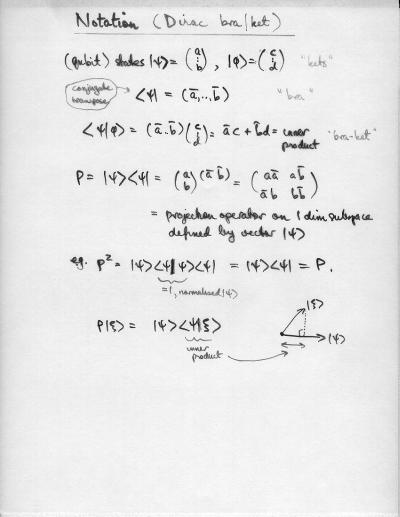 Notation (Dirac bra/ket)
(qubit) states |ψ> = (a ⋮ b), |φ> = (c ⋮ d) "kets"
conjugate transpose → <ψ| = (ā,...b̄) "bra"
<ψ|φ> = (ā..b̄)(c d) = āc + b̄d = inner product "bra-ket"
P = |ψ><ψ| = (a b)(ā b̄) = (aā ab̄ āb bb̄)
= projection operator on 1 dim subspace
defined by vector |ψ>
eg. P² = |ψ><ψ|ψ><ψ| = |ψ><ψ| = P.
=1, normalised |ψ>
P|ξ> = |ψ><ψ|ξ>
inner product
|ξ>
|ψ>